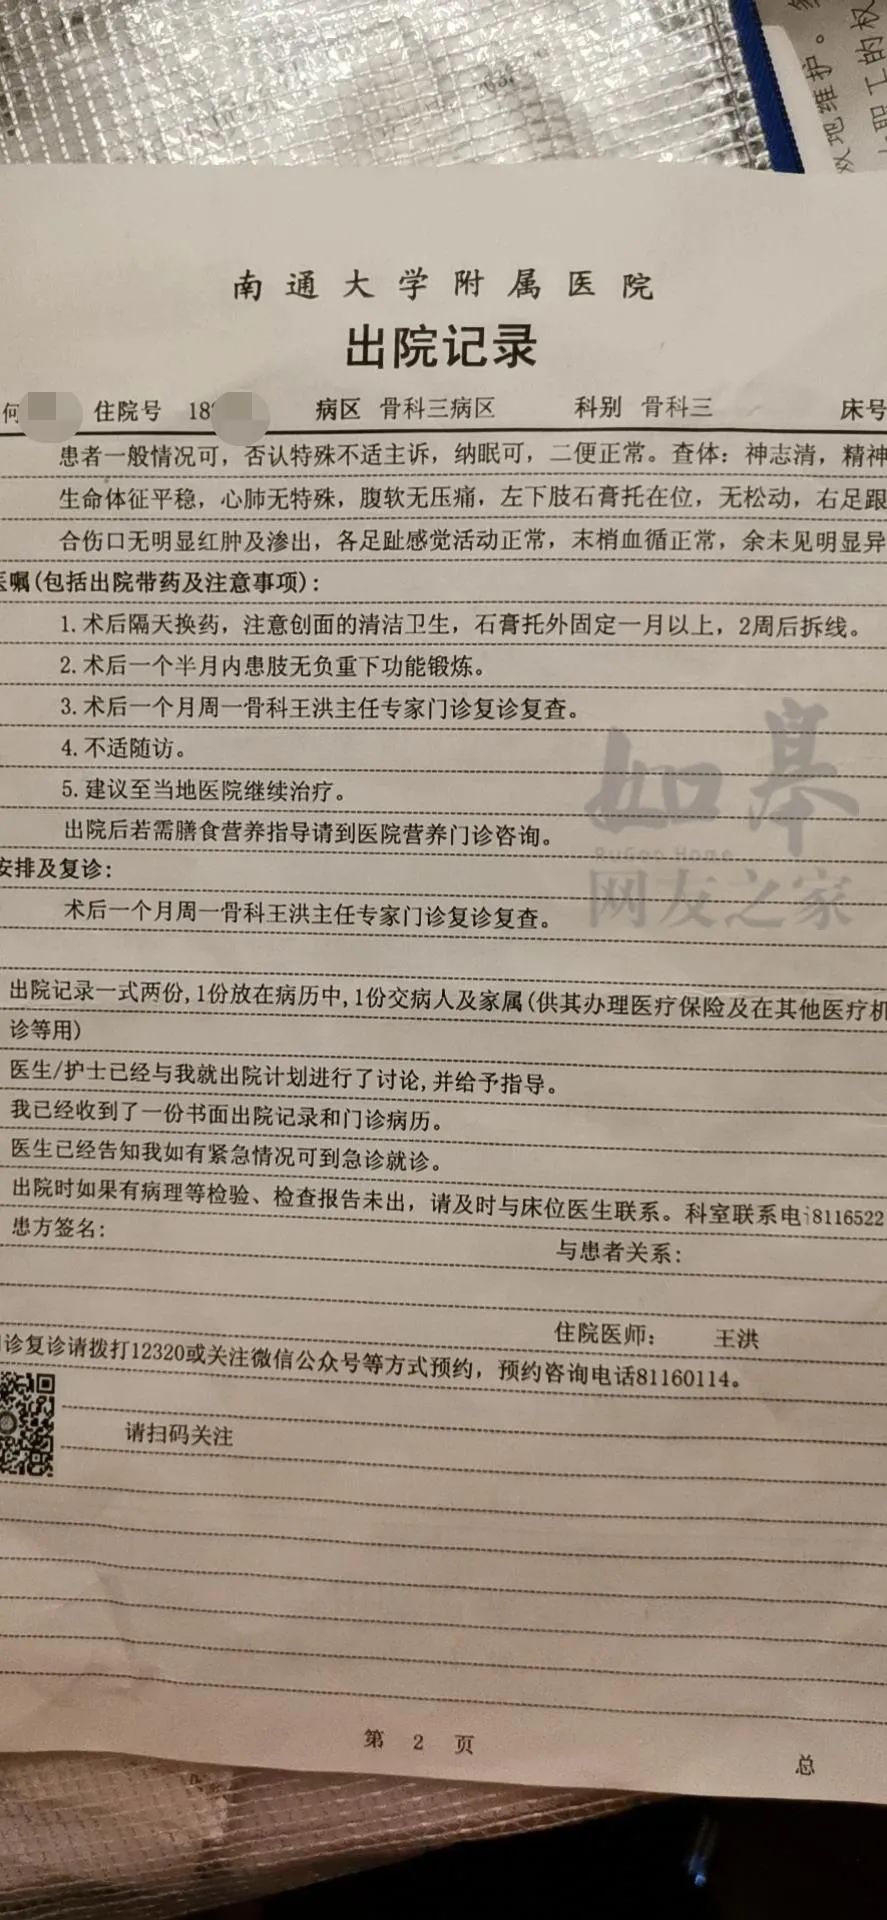 效地维护。
职工的权
南通大学附属医院
出院记录
何 住院号 18 病区 骨科三病区 科别 骨科三 床号
患者一般情况可，否认特殊不适主诉，纳眠可，二便正常。查体：神志清，精神
生命体征平稳，心肺无特殊，腹软无压痛，左下肢石膏托在位，无松动，右足跟
合伤口无明显红肿及渗出，各足趾感觉活动正常，末梢血循正常，余未见明显异
医嘱(包括出院带药及注意事项):
1.术后隔天换药，注意创面的清洁卫生，石膏托外固定一月以上，2周后拆线。
2.术后一个半月内患肢无负重下功能锻炼。
3.术后一个月周一骨科王洪主任专家门诊复诊复查。
4.不适随访。
5.建议至当地医院继续治疗。
出院后若需膳食营养指导请到医院营养门诊咨询。
安排及复诊:
术后一个月周一骨科王洪主任专家门诊复诊复查。
如皋
RuGao Home
网友之家
出院记录一式两份,1份放在病历中,1份交病人及家属(供其办理医疗保险及在其他医疗机
诊等用)
医生/护士已经与我就出院计划进行了讨论,并给予指导。
我已经收到了一份书面出院记录和门诊病历。
医生已经告知我如有紧急情况可到急诊就诊。
出院时如果有病理等检验、检查报告未出，请及时与床位医生联系。科室联系电 8116522
患方签名: 与患者关系:
住院医师: 王洪
诊复诊请拨打12320或关注微信公众号等方式预约，预约咨询电话81160114。
请扫码关注
第 2 页
总